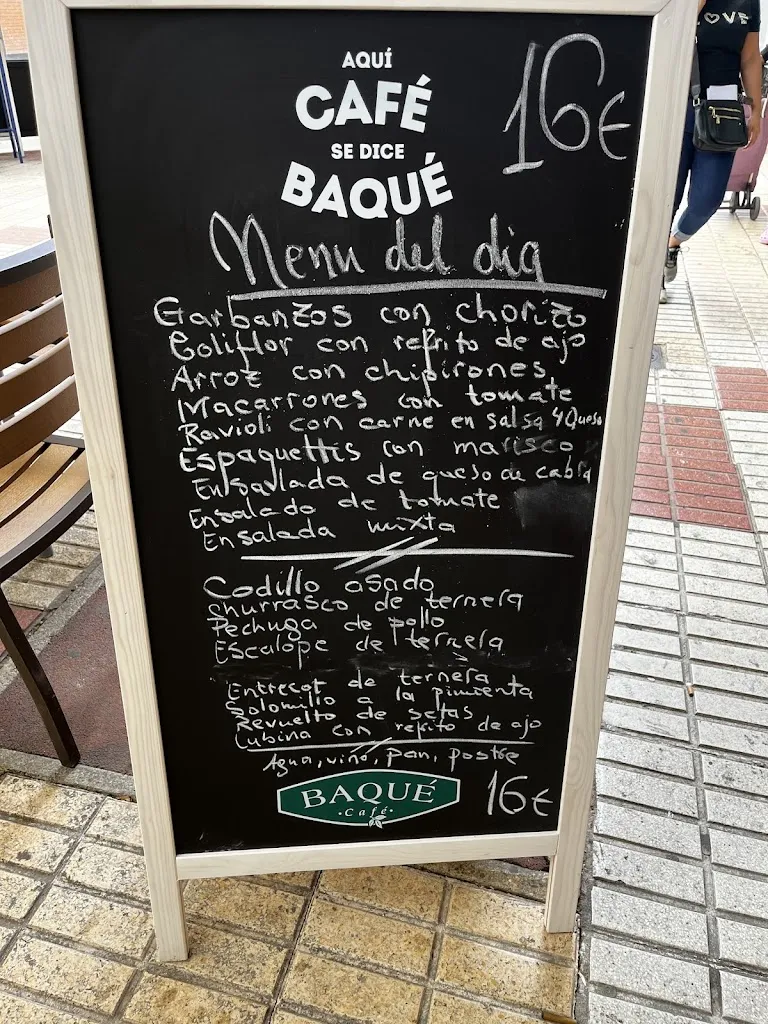 LOVE
AQUÍ
CAFÉ
SE DICE
BAQUÉ
16€
Menu del dia
Garbanzos con chorizo
Coliflor con refrito de ajo
Arroz con chipirones
Macarrones con tomate
Ravioli con carne en salsa 4 Queso
Espaguettis con marisco
Ensalada de queso de cabra
Ensalada de tomate
Ensalada mixta
Codillo asado
Churrasco de ternera
Pechuga de pollo
Escalope de ternera
Entrecot de ternera
Solomillo a la pimienta
Revuelto de setas
Lubina con refrito de ajo
Agua, vino, pan, postre
BAQUÉ
·Café·
16€